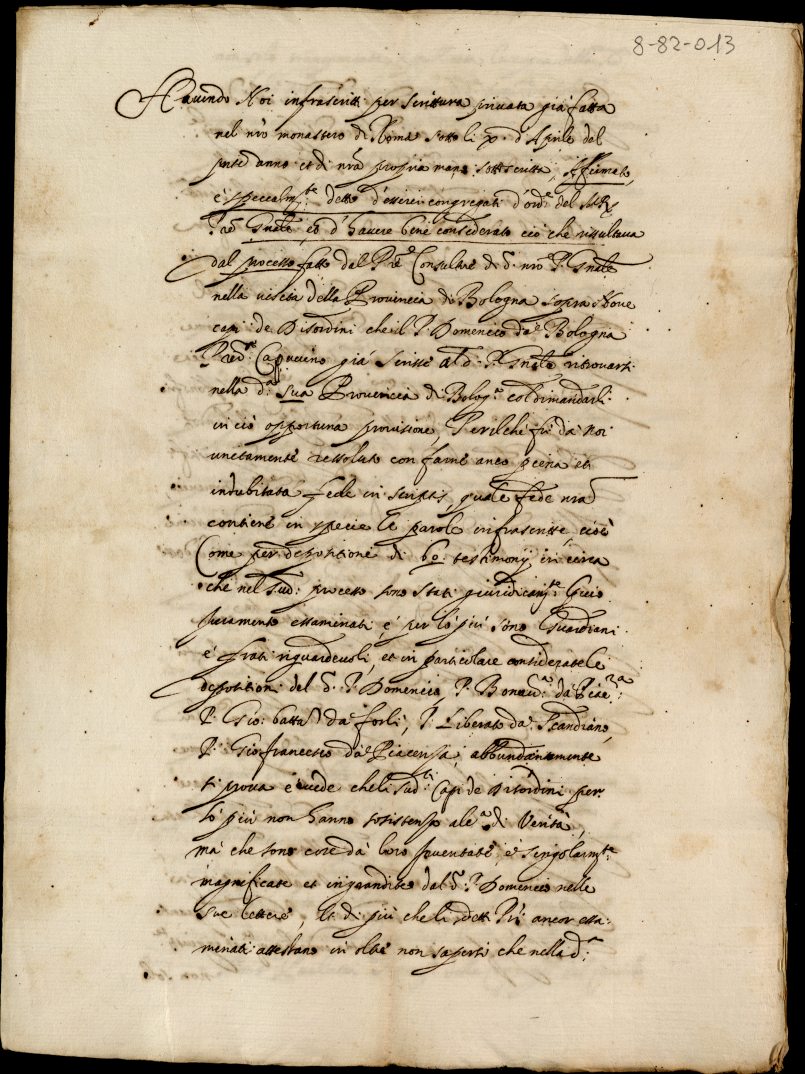 8-82-013
Havendo Noi infrascritti per scrittura privata già fatta
nel nrō monastero di Roma sotto li x. d'Aprile del
pnte anno et di nrā propria mano sottoscritta, Affirmato,
è specealm.te detto d'esserci congregati d'ord.e del M.R.
P.re Gnāle, et d'havere bene considerato ciò che risultava
dal processo fatto dal P.re Consultre di d. nrō P. Gnāle
nella visita della Provincia di Bologna sopra Nove
capi de Disordini che il P. Domenico da Bologna
Pred.re Capuccino già scrisse al d. P. Gnāle ritrovarsi
nella d.a sua Provincia di Bolog.a col dimandarli
in ciò opportuna provisione, Perilche fù da noi
unitamente ressoluto con farne anco piena et
indubitata fede in scriptis quale fede nrā
contiene in specie le parole infrascritte, cioè
Come per depositione di 60. testimonij in circa
che nel sud. processo sono stati giuridicam.te
juramento essaminati, é per lo più sono Guardiani
é frati riguardevoli, et in particolare considerate le
depositioni del d. P. Domenico, P. Bonav.a da Piac.za
P. Gio: batta da forlì, P. Liberato da Scandiano,
P. Giofrancesco da Piacensa, abbundantemente
si prova é vede che li sud.ti Capi de Disordini per
lo più non hanno sosistenza ale.a di Verità,
mà che sono cose da loro inventate, é singolarm.te
magnificate et ingrandite dal d. P. Domenico nelle
sue lettere, Et di più che li detti Pri ancor essa:
minati attestano in oltre non sapersi che nella d.a